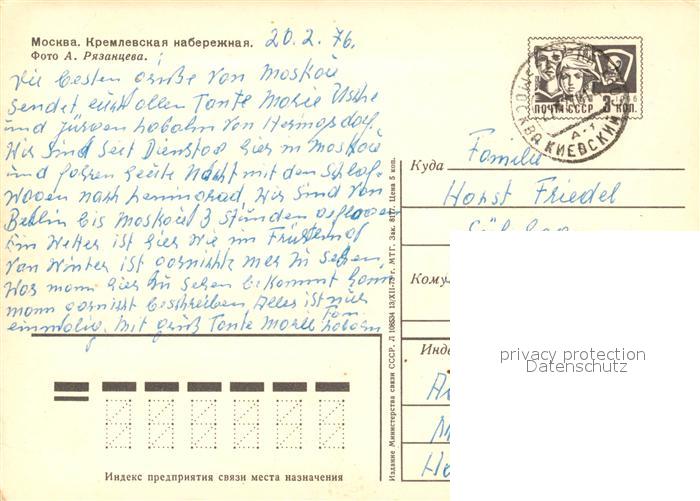 Москва. Кремлевская набережная. 20.2.76.
Фото А. Рязанцева.
Die besten Grüße von Moskau
sendet euch allen Tante Marie Usche
und Jürgen von Hermsdorf.
Wir sind seit Dienstag hier in Moskau
und fahren heute Nacht mit den Schlaf-
wagen nach Leningrad. Wir sind von
Berlin bis Moskau 3 Stunden geflogen
Ein Wetter ist hier wie im
von Winter ist garnichts mer zu sehen.
Was mann hier zu sehen bekommt kann
mann garnicht beschreiben Alles ist nur
einmalig. Mit Gruß Tante Marie
ПОЧТА СССР 3 КОП. 1966
МОСКВА КИЕВСКИЙ
Куда Familie
Horst Friedel
Кому
Инде
Издание Министерства связи СССР. Л 108534 13/XII-73 г. МТГ. Зак. Цена 5 коп.
privacy protection
Datenschutz
Индекс предприятия связи места назначения